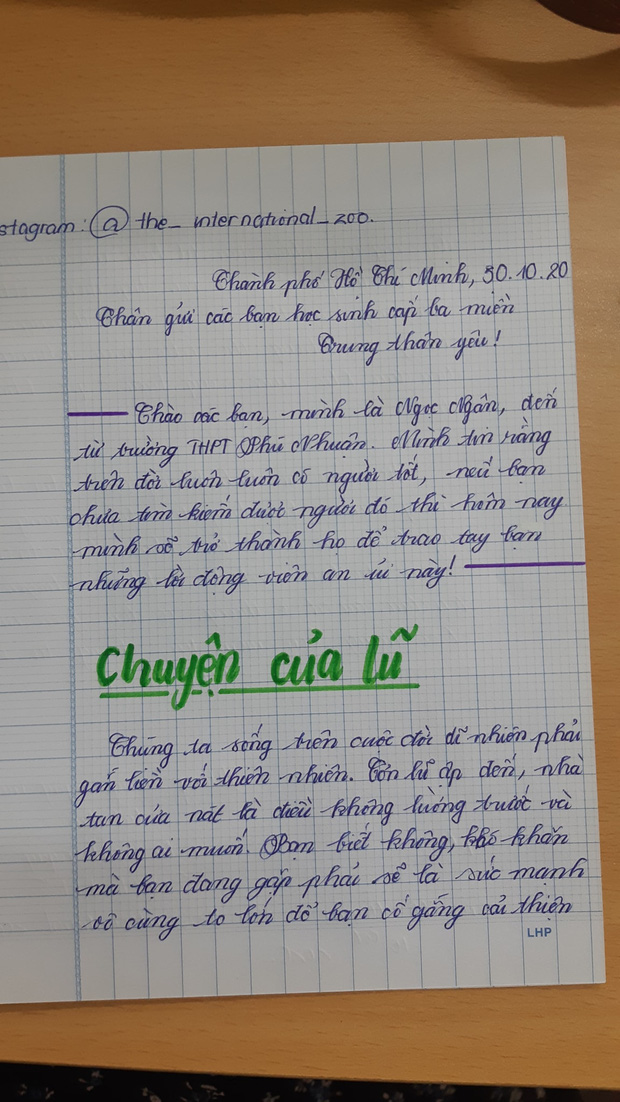 stagram: @ the_ international_zoo.
Thành phố Hồ Chí Minh, 30.10.20
Thân gửi các bạn học sinh cấp ba miền
Trung thân yêu!
Chào các bạn, mình là Ngọc Ngân, đến
từ trường THPT Phú Nhuận. Mình tin rằng
trên đời luôn luôn có người tốt, nếu bạn
chưa tìm kiếm được người đó thì hôm nay
mình sẽ trở thành họ để trao tay bạn
những lời động viên an ủi này!
Chuyện của lũ
Chúng ta sống trên cuộc đời dĩ nhiên phải
gắn liền với thiên nhiên. Cơn lũ ập đến, nhà
tan cửa nát là điều không lường trước và
không ai muốn. Bạn biết không, khó khăn
mà bạn đang gặp phải sẽ là sức mạnh
vô cùng to lớn để bạn cố gắng cải thiện
LHP